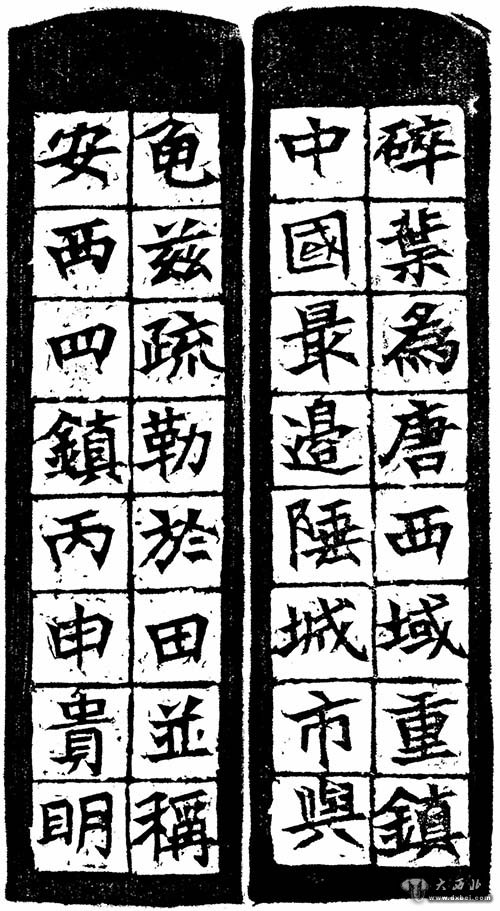 碎葉為唐西域重鎮
中國最邉陲城市與
龟兹疏勒於田並稱
安西四鎮丙申貴明
大西北
www.dxbei.com